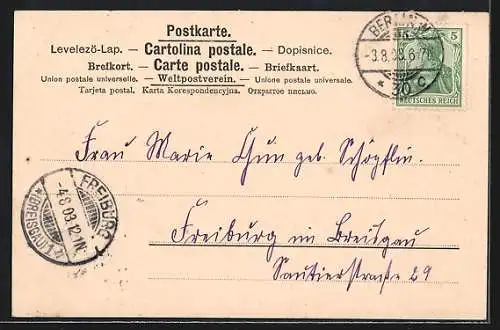 Postkarte.
Levelezö-Lap. — Cartolina postale. — Dopisnice.
Brefkort. — Carte postale. — Briefkaart.
Union postale universelle. — Weltpostverein. — Unione postale universale.
Tarjeta postal. Karta Korespondencyjna. Открытое письмо.
BERLIN
-3.8.03.6-7N.
* 30 c
5
DEUTSCHES REICH
Frau Marie Thun geb. Schöpflin.
FREIBURG
-4.8.03.12-1N.
(BREISGAU)
Freiburg im Breisgau
Sautierstraße 29